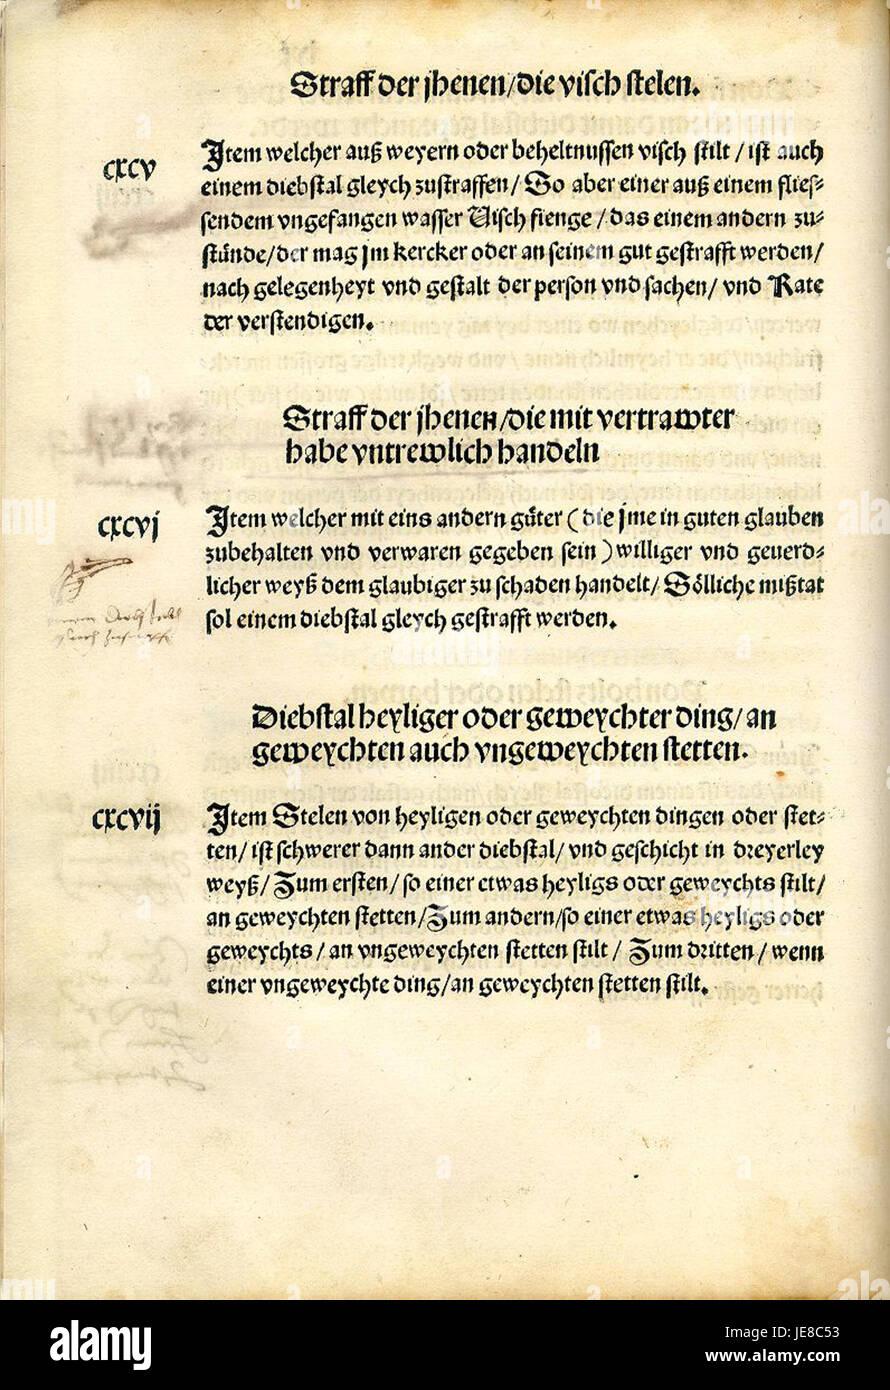 Straff der jhenen/die visch stelen.
cxcv
Item welcher auß weyern oder beheltnussen visch stilt / ist auch
einem diebstal gleych zustraffen / So aber einer auß einem flies-
sendem vngefangen wasser Visch fienge / das einem andern zu-
stünde/der mag jm kercker oder an seinem gut gestrafft werden/
nach gelegenheyt vnd gestalt der person vnd sachen/ vnd Rate
der verstendigen.
Straff der jhenen/die mit vertrawter
habe vntrewlich handeln
cxcvj
Item welcher mit eins andern güter ( die jme in guten glauben
zubehalten vnd verwaren gegeben sein ) williger vnd geuerd-
licher weyß dem glaubiger zu schaden handelt/ Sölliche mißtat
sol einem diebstal gleych gestrafft werden.
Diebstal heyliger oder geweychter ding/an
geweychten auch vngeweychten stetten.
cxcvij
Item Stelen von heyligen oder geweychten dingen oder stet-
ten/ ist schwerer dann ander diebstal/ vnd geschicht in dreyerley
weyß/ Zum ersten/ so einer etwas heyligs oder geweychts stilt/
an geweychten stetten/Zum andern/so einer etwas heyligs oder
geweychts / an vngeweychten stetten stilt / Zum dritten / wenn
einer vngeweychte ding/an geweychten stetten stilt.
alamy
Image ID: JE8C53
www.alamy.com